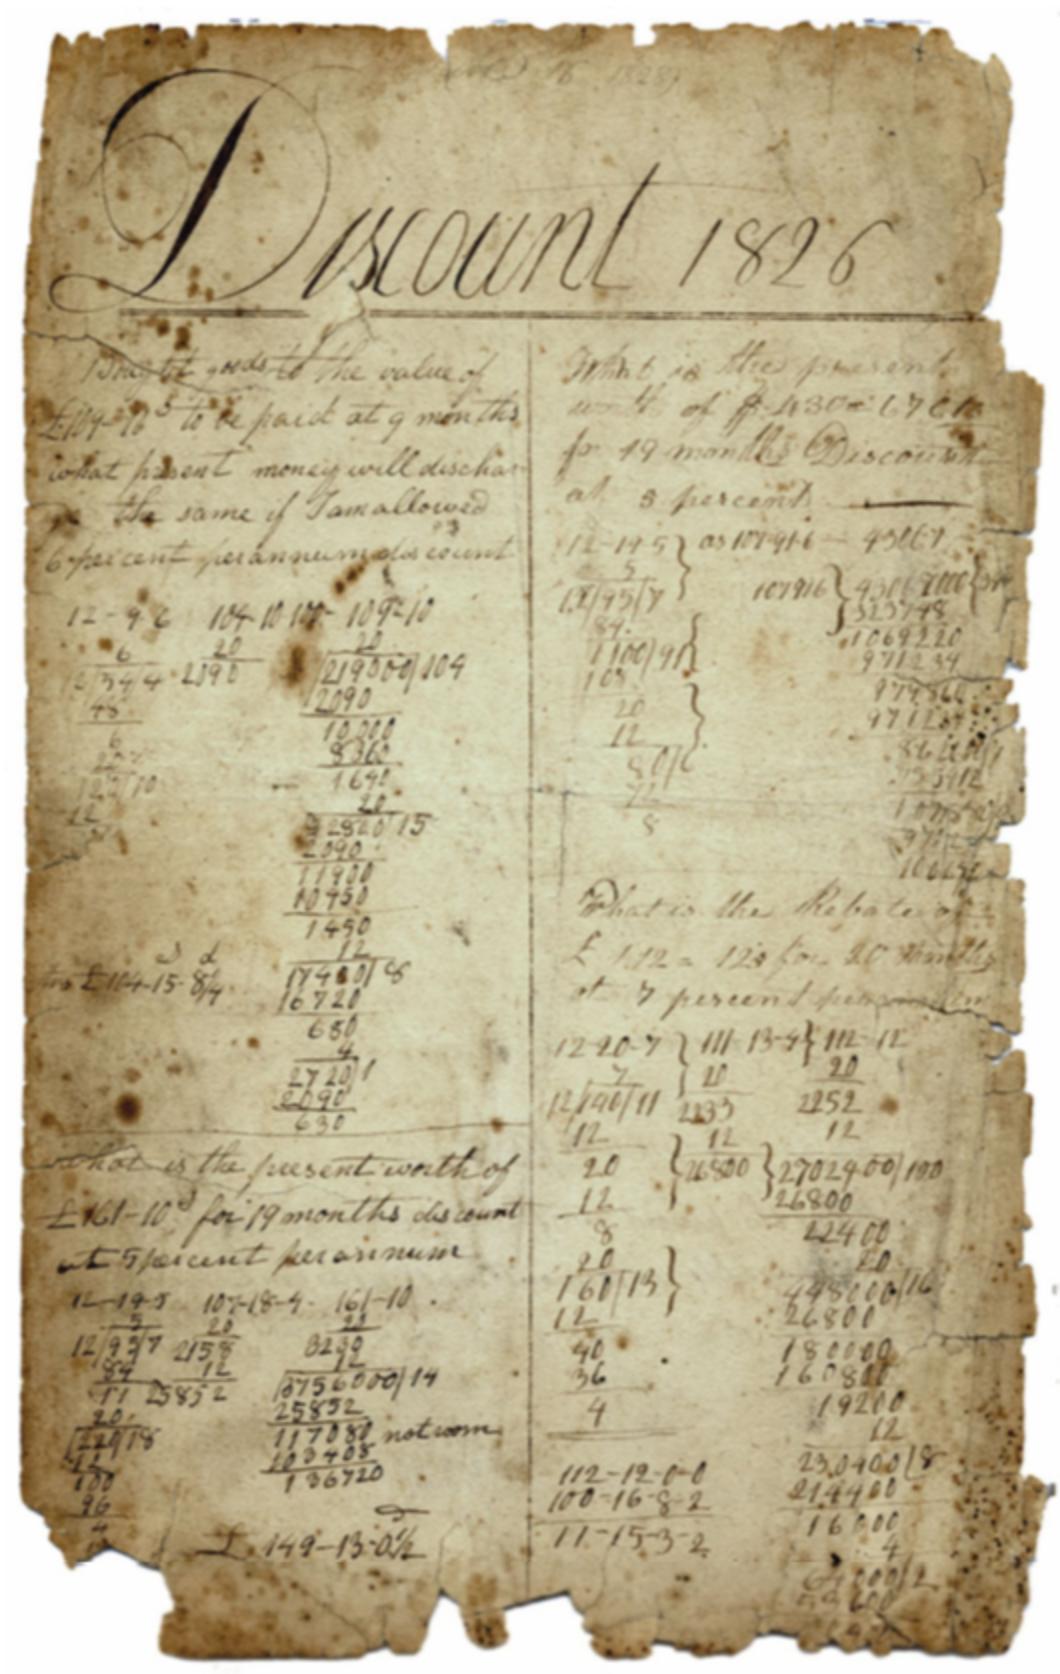 1828
Discount 1826
Bought goods to the value of
£109-10 s to be paid at 9 months
what present money will dischar
ge the same if I am allowed
6 percent per annum discount
12 - 9 - 6 104-10 100- 109-10
6 20 20
12/54/4 2090 219000/104
48 2090
6 10000
20 8360
120/10 1640
12 20
32800/15
2090
11900
10450
1450
12
s d
£104-15-8 1/4 17400/8
16720
680
4
2720/1
2090
630
what is the present worth of
£161-10 s for 19 months discount
at 5 percent per annum
12-19-5 107-18-4 161-10
5 20 20
12/95/7 2158 3230
84 12 12
11 25852 3756000/14
20 25852
220/18 117080 not room
12 103408
100 136720
96
4
£ 149-13-0 1/2
What is the present
worth of
for 19 months Discount
at 5 percent
12-19-5 as 107916 - 43067
5
12/95/7 107916 43067000
84 323748
1100/91 1069220
108 971244
20
12
8
What is the Rebate of
£ 112 = 12s for 20 months
at 7 percent per annum
12-20-7 111-13-4 112-12
7 20 20
12/140/11 2233 2252
12 12 12
20 26800 2702400/100
12 26800
8 22400
20 20
160/13 448000/16
12 26800
40 180000
36 160800
4 19200
12
112-12-0-0 230400/8
100-16-8-2 214400
11-15-3-2 16000
4